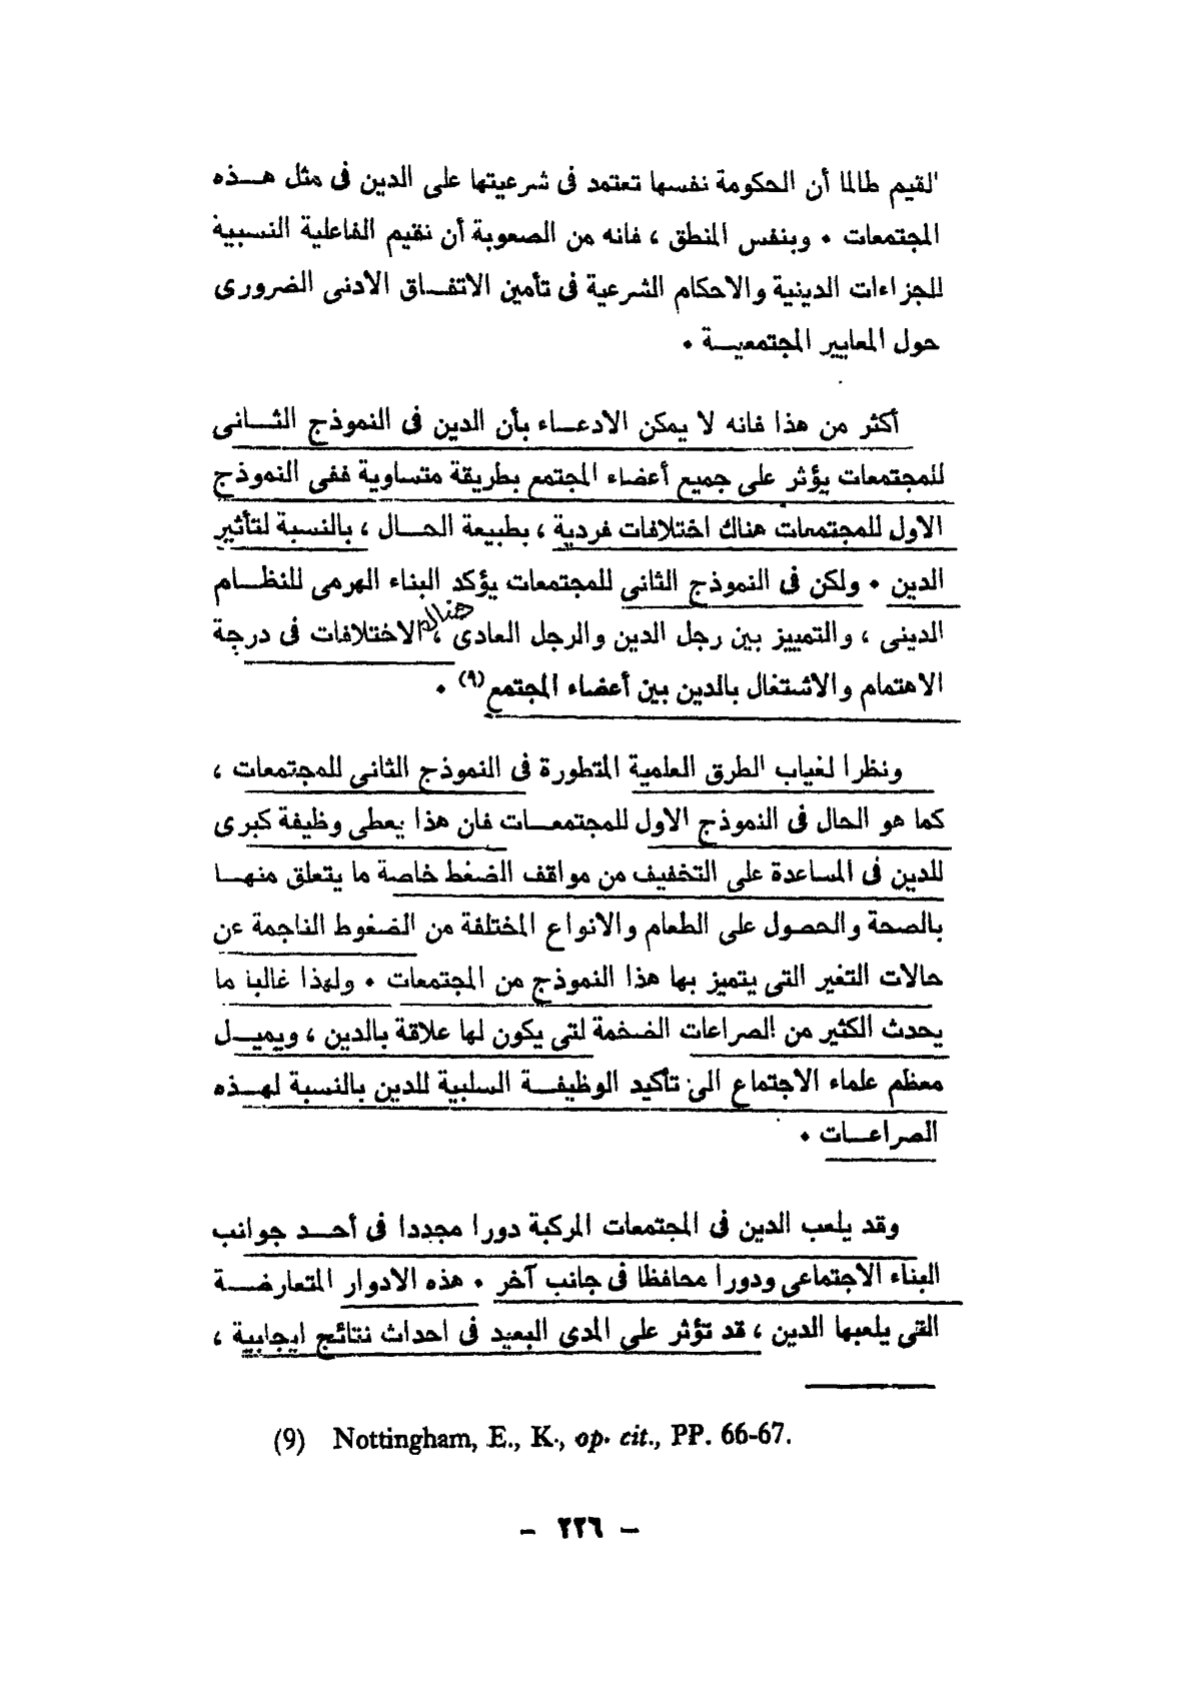 القيم طالما أن الحكومة نفسها تعتمد فى شرعيتها على الدين فى مثل هـــذه
المجتمعات • وبنفس المنطق ، فانه من الصعوبة أن نقيم الفاعلية النسبية
للجزاءات الدينية والاحكام الشرعية فى تأمين الاتفــاق الادنى الضرورى
حول المعايير المجتمعيــة •
أكثر من هذا فانه لا يمكن الادعــاء بأن الدين فى النموذج الثــانى
للمجتمعات يؤثر على جميع أعضاء المجتمع بطريقة متساوية ففى النموذج
الاول للمجتمعات هناك اختلافات فردية ، بطبيعة الحــال ، بالنسبة لتأثير
الدين • ولكن فى النموذج الثانى للمجتمعات يؤكد البناء الهرمى للنظــام
الدينى ، والتمييز بين رجل الدين والرجل العادى ، هناك الاختلافات فى درجة
الاهتمام والاشتغال بالدين بين أعضاء المجتمع(٩) •
ونظرا لغياب الطرق العلمية المتطورة فى النموذج الثانى للمجتمعات ،
كما هو الحال فى النموذج الاول للمجتمعــات فان هذا يعطى وظيفة كبرى
للدين فى المساعدة على التخفيف من مواقف الضغط خاصة ما يتعلق منهــا
بالصحة والحصول على الطعام والانواع المختلفة من الضغوط الناجمة عن
حالات التغير التى يتميز بها هذا النموذج من المجتمعات • ولهذا غالبا ما
يحدث الكثير من الصراعات الضخمة لتى يكون لها علاقة بالدين ، ويميــل
معظم علماء الاجتماع الى تأكيد الوظيفــة السلبية للدين بالنسبة لهــذه
الصراعــات •
وقد يلعب الدين فى المجتمعات المركبة دورا مجددا فى أحــد جوانب
البناء الاجتماعى ودورا محافظا فى جانب آخر • هذه الادوار المتعارضــة
التى يلعبها الدين ، قد تؤثر على المدى البعيد فى احداث نتائج ايجابية ،
(9) Nottingham, E., K., op. cit., PP. 66-67.
— ٢٢٦ —